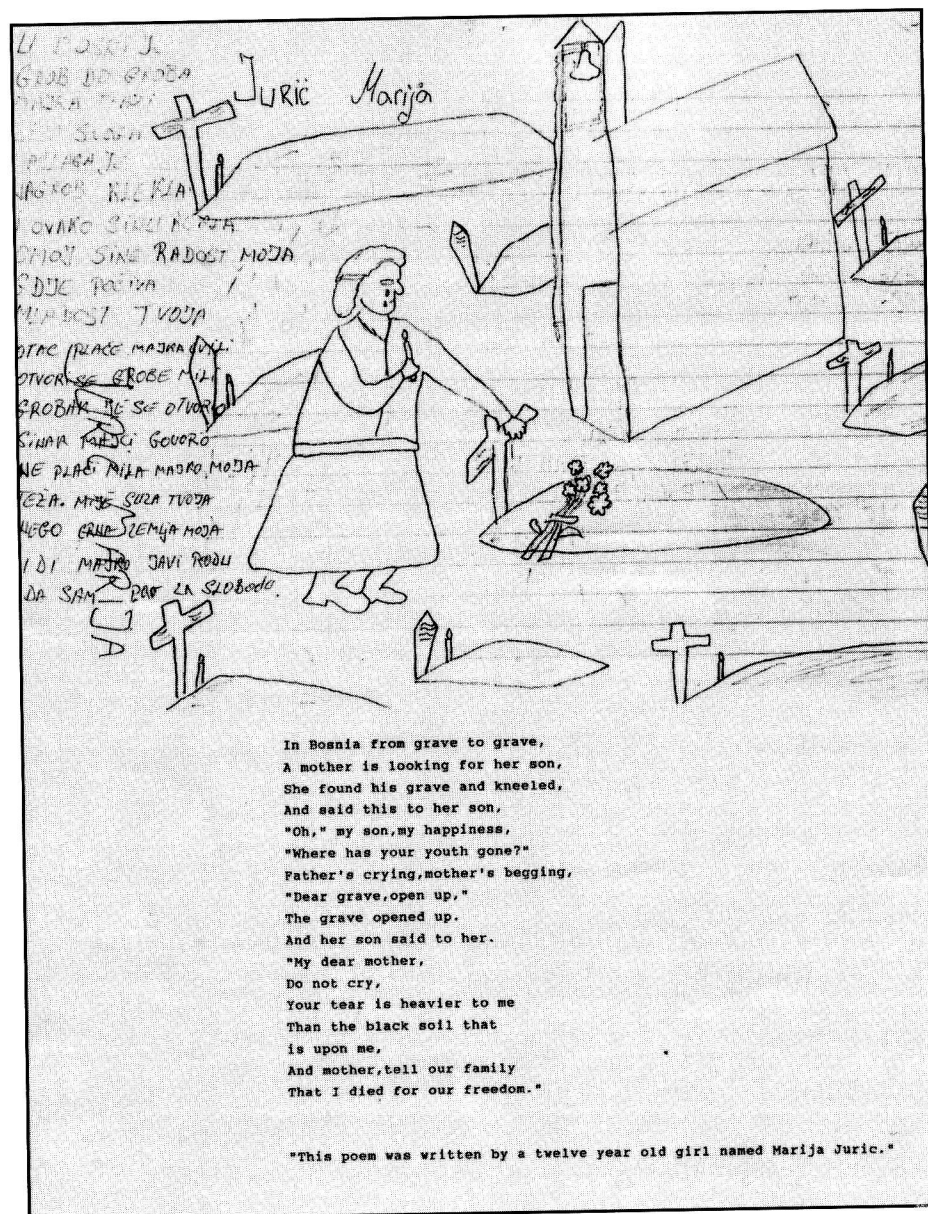 GROB DO GROBA
JURIĆ Marija
MAJKA
NAGROB KLEKLA
OVAKO SINU
OMOJ SINE RADOST MOJA
GDJE POČIVA
MLADOST TVOJA
OTAC PLAČE MAJKA CVILI
OTVORI SE GROBE MILI
GROBAK SE OTVORIO
SINAK MAJCI GOVORO
NE PLAČI MILA MAJKO, MOJA
TEŽA. MI JE SUZA TVOJA
NEGO CRNA ZEMLJA MOJA
IDI MAJKO JAVI RODU
DA SAM PAO ZA SLOBODU.
In Bosnia from grave to grave,
A mother is looking for her son,
She found his grave and kneeled,
And said this to her son,
"Oh," my son,my happiness,
"Where has your youth gone?"
Father's crying,mother's begging,
"Dear grave,open up,"
The grave opened up.
And her son said to her.
"My dear mother,
Do not cry,
Your tear is heavier to me
Than the black soil that
is upon me,
And mother,tell our family
That I died for our freedom."
"This poem was written by a twelve year old girl named Marija Juric."